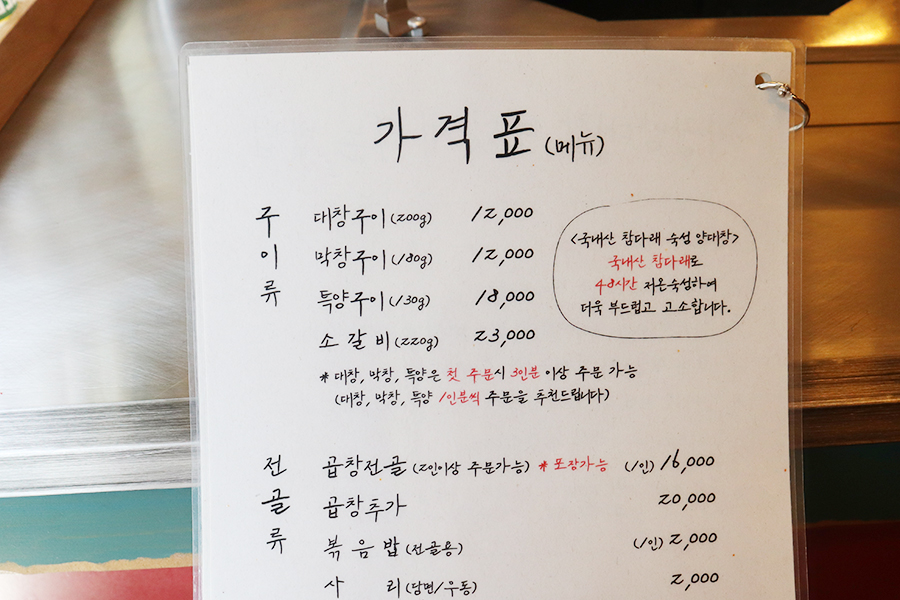 가격표 (메뉴)
구이류
대창구이 (200g) 12,000
막창구이 (180g) 12,000
특양구이 (130g) 18,000
소갈비 (220g) 23,000
<국내산 참다래 숙성 양대창>
국내산 참다래로
48시간 저온숙성하여
더욱 부드럽고 고소합니다.
* 대창, 막창, 특양은 첫 주문시 3인분 이상 주문 가능
(대창, 막창, 특양 1인분씩 주문을 추천드립니다)
전골류
곱창전골 (2인이상 주문가능) * 포장가능 (1인) 16,000
곱창추가 20,000
볶음밥 (전골용) (1인) 2,000
사리 (당면/우동) 2,000